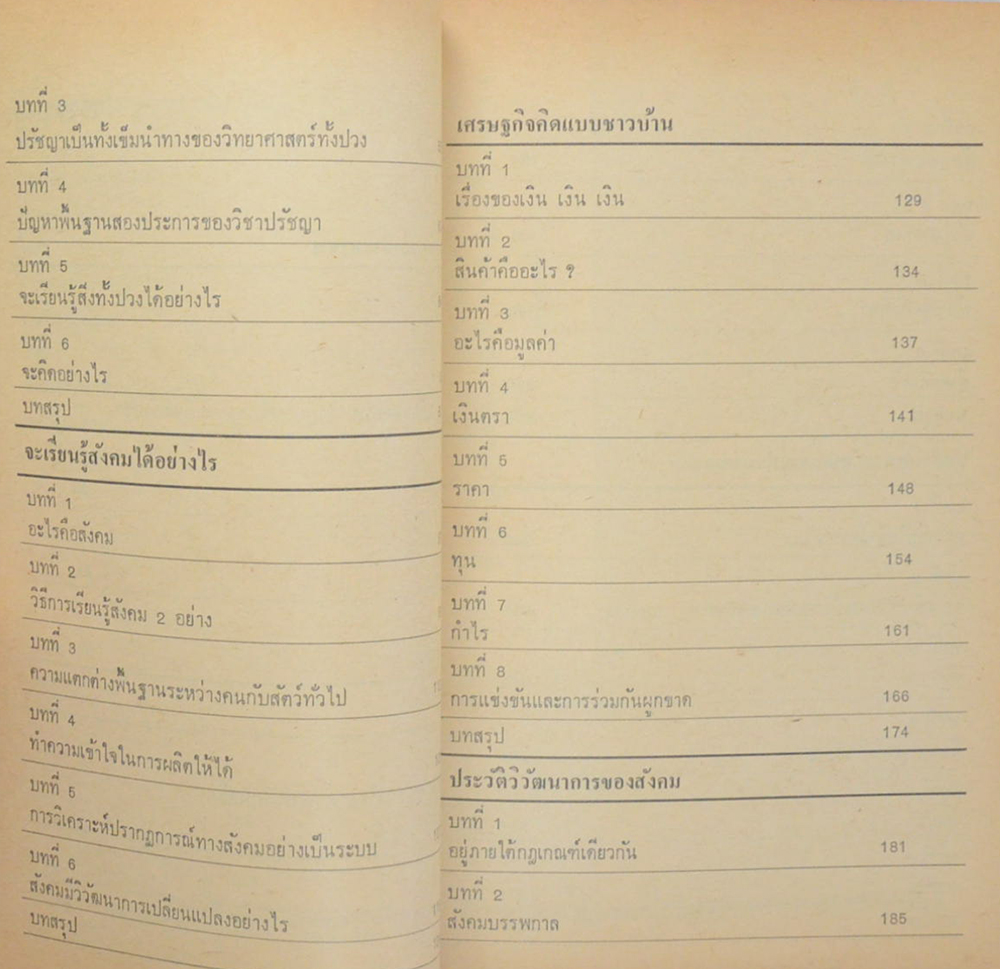 บทที่ 3
ปรัชญาเป็นทั้งเข็มนำทางของวิทยาศาสตร์ทั้งปวง
บทที่ 4
ปัญหาพื้นฐานสองประการของวิชาปรัชญา
บทที่ 5
จะเรียนรู้สิ่งทั้งปวงได้อย่างไร
บทที่ 6
จะคิดอย่างไร
บทสรุป
จะเรียนรู้สังคมได้อย่างไร
บทที่ 1
อะไรคือสังคม
บทที่ 2
วิธีการเรียนรู้สังคม 2 อย่าง
บทที่ 3
ความแตกต่างพื้นฐานระหว่างคนกับสัตว์ทั่วไป
บทที่ 4
ทำความเข้าใจในการผลิตให้ได้
บทที่ 5
การวิเคราะห์ปรากฏการณ์ทางสังคมอย่างเป็นระบบ
บทที่ 6
สังคมมีวิวัฒนาการเปลี่ยนแปลงอย่างไร
บทสรุป
เศรษฐกิจคิดแบบชาวบ้าน
บทที่ 1
เรื่องของเงิน เงิน เงิน 129
บทที่ 2
สินค้าคืออะไร ? 134
บทที่ 3
อะไรคือมูลค่า 137
บทที่ 4
เงินตรา 141
บทที่ 5
ราคา 148
บทที่ 6
ทุน 154
บทที่ 7
กำไร 161
บทที่ 8
การแข่งขันและการร่วมกันผูกขาด 166
บทสรุป 174
ประวัติวิวัฒนาการของสังคม
บทที่ 1
อยู่ภายใต้กฎเกณฑ์เดียวกัน 181
บทที่ 2
สังคมบรรพกาล 185